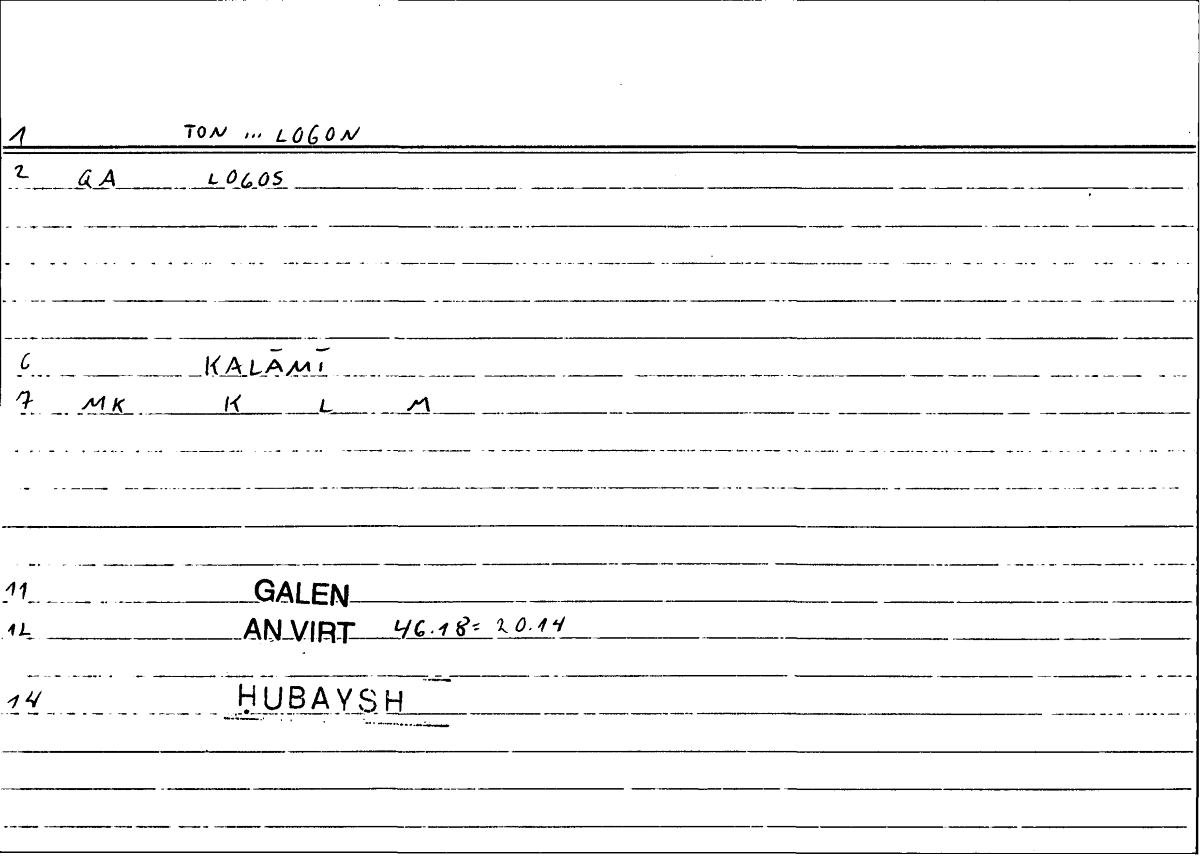 1 TON ... LOGON
2 GA LOGOS
6 KALĀMĪ
7 MK K L M
11 GALEN
12 AN VIRT 46.18= 20.14
14 ḤUBAYSH